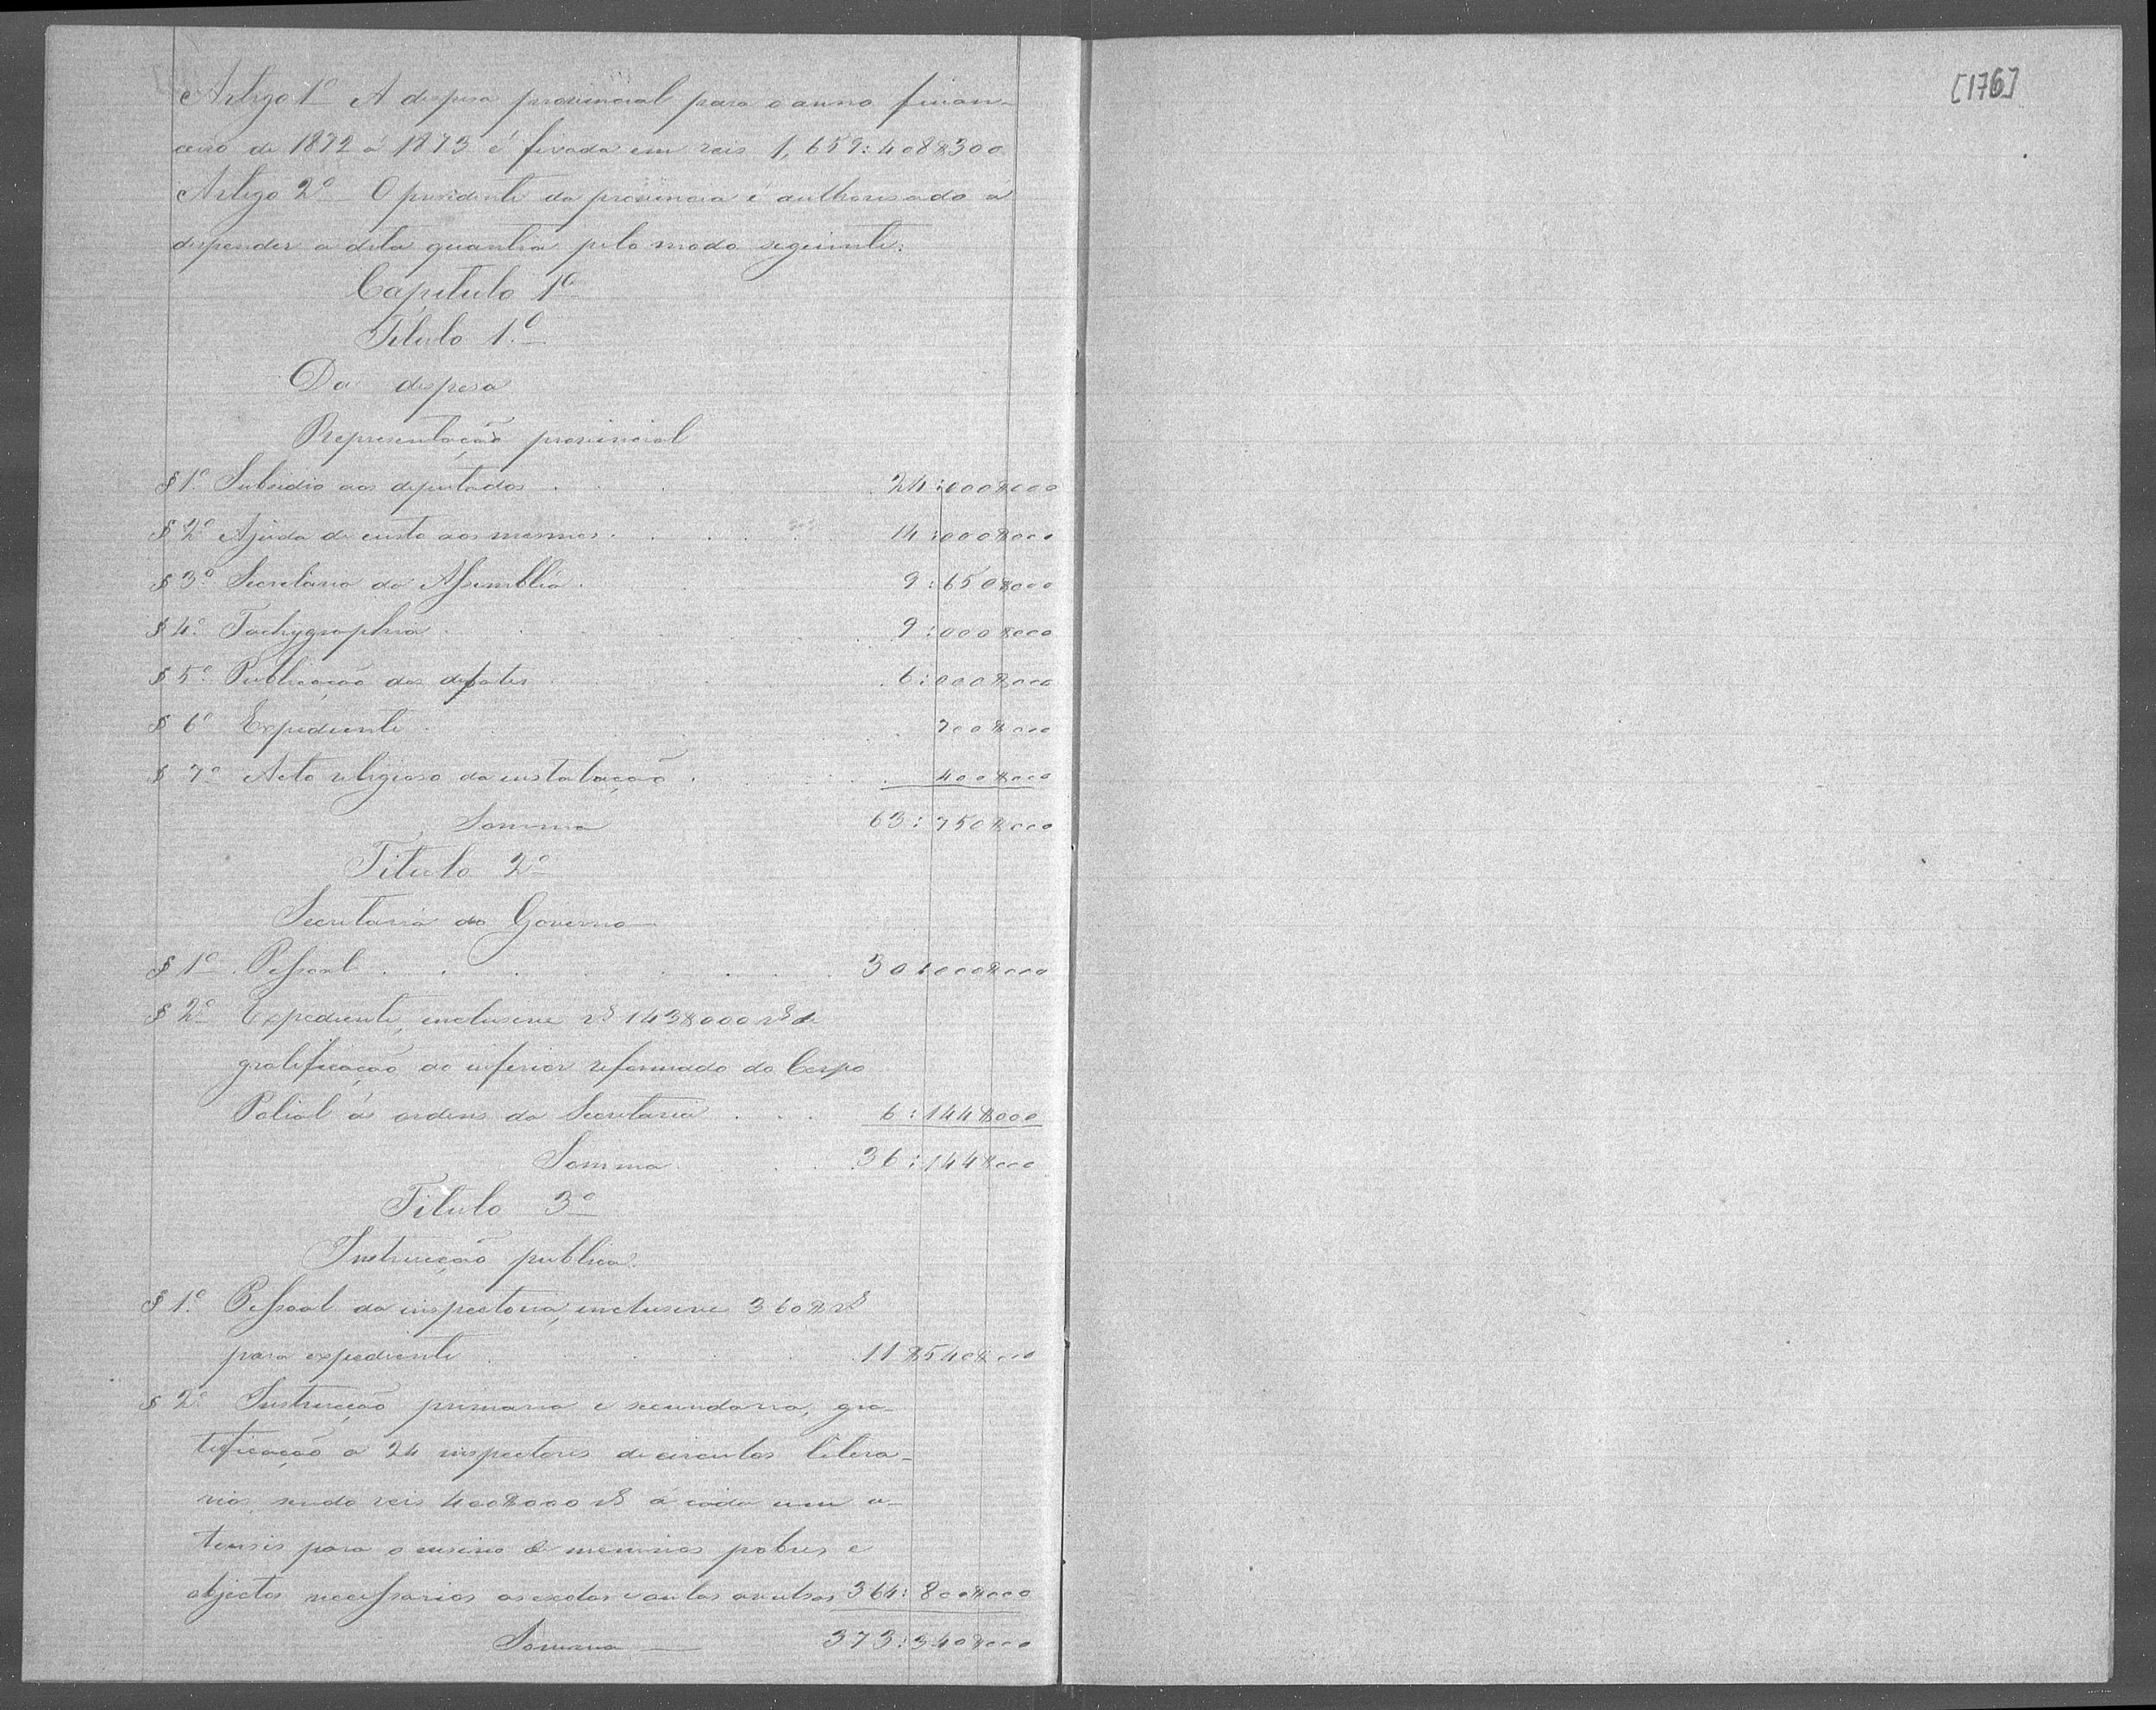 Artigo 1º A despesa provincial para o anno finan-
ceiro de 1872 á 1873 é fixada em reis 1,659:408$300
Artigo 2º O presidente da provincia é authorisado a
dispender a dita quantia pelo modo seguinte:
Capitulo 1º
Titulo 1º
Da despesa
Representação provincial
§ 1º Subsidio aos deputados . . . 24:000$000
§ 2º Ajuda de custo aos mesmos . . . . 14:000$000
§ 3º Secretaria da Assemblea . 9:650$000
§ 4º Tachygraphia . . . 9:000$000
§ 5º Publicação dos debates . . 6:000$000
§ 6º Expediente . . . 700$000
§ 7º Acto religioso da instalação . . . 400$000
Somma 63:750$000
Titulo 2º
Secretaria do Governo
§ 1º Pessoal . . . . . . 30:000$000
§ 2º Expediente, inclusive rs 143$000 rs de
gratificação ao inferior reformado do Corpo
Polical ás ordens da Secretaria . . . 6:144$000
Somma . . . 36:144$000
Titulo 3º
Instrucção publica
§ 1º Pessoal da inspectoria, inclusive 360$ rs
para expediente . . . 11$540$000
§ 2º Instrucção primaria e secundaria, gra-
tificação a 24 inspectores de circulos litera-
rios, sendo reis 400$000 rs á cada um u-
tensis para o ensino de meninos pobres e
objectos necessarios as escolas e aulas avulsas 364:800$000
Somma — 373:340$000
[176]